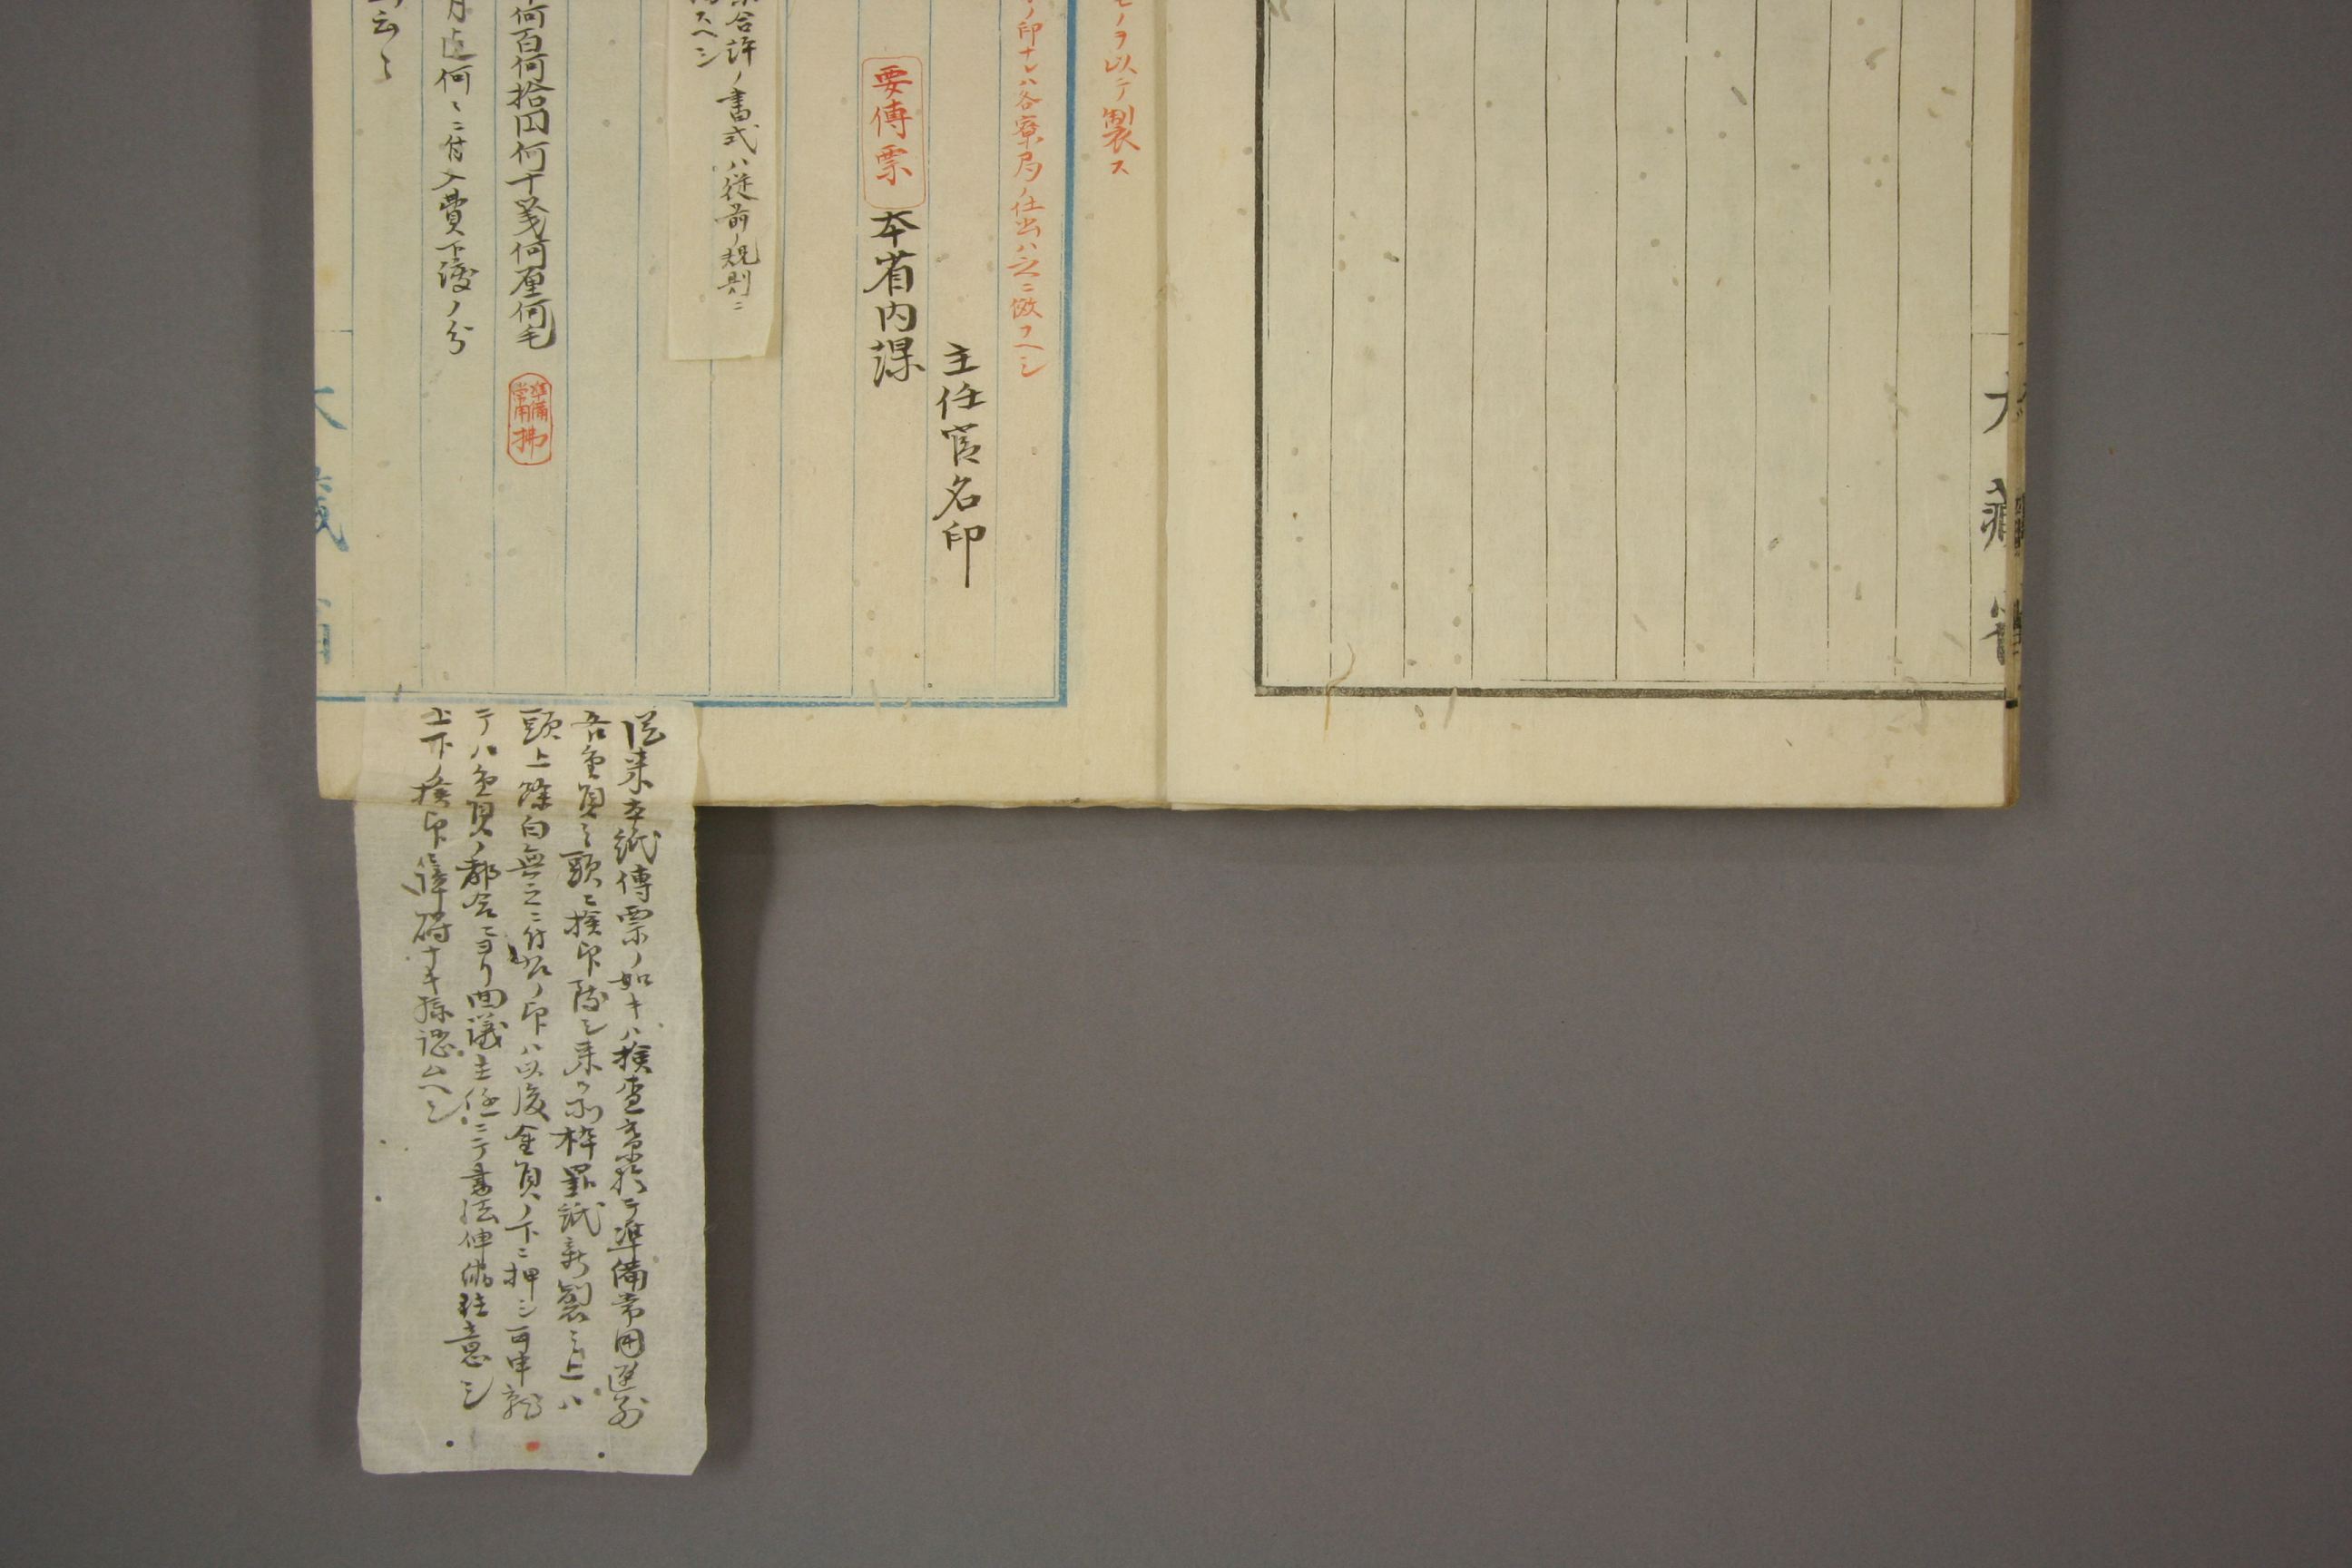 大藏省
モノヲ以テ製ス
ノ印ナレハ各寮局ノ仕出ハ之ニ倣フヘシ
主任官名印
要傳票 本省内課
合許ノ書式ハ従前ノ規則ニ
スヘシ
何百何拾円何十箋何厘何毛 準備常用拂
月迄何々ニ付入費下渡ノ分
云々
大藏省
従来本紙傳票ノ如キハ検査寮於テ準備常用区別
方金員之頭ニ検印致シ来候処枠罫紙新製之上ハ
頭上余白無之ニ付此ノ印ハ以後金員ノ下ニ押シ可申就
テハ金員ノ都合ニヨリ回議主任ニテ書法伸縮注意シ
上下ノ検印ニ障碍ナキ様認ムヘシ